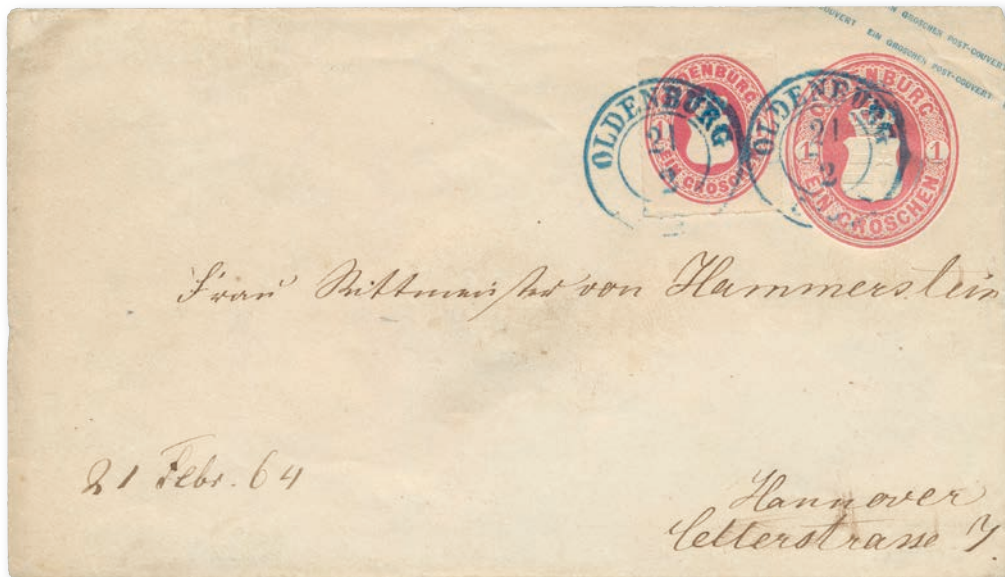 EIN GROSCHEN POST-COUVERT
EIN GROSCHEN POST-COUVERT
OLDENBURG
1
EIN GROSCHEN
OLDENBURG
21
2
OLDENBURG
1 1
EIN GROSCHEN
OLDENBURG
21
2
Frau Rittmeister von Hammerstein
21 Febr. 64
Hannover
Cellerstrasse 7